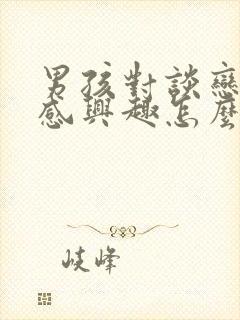 男孩對談戀
感興趣怎麼
岐峰